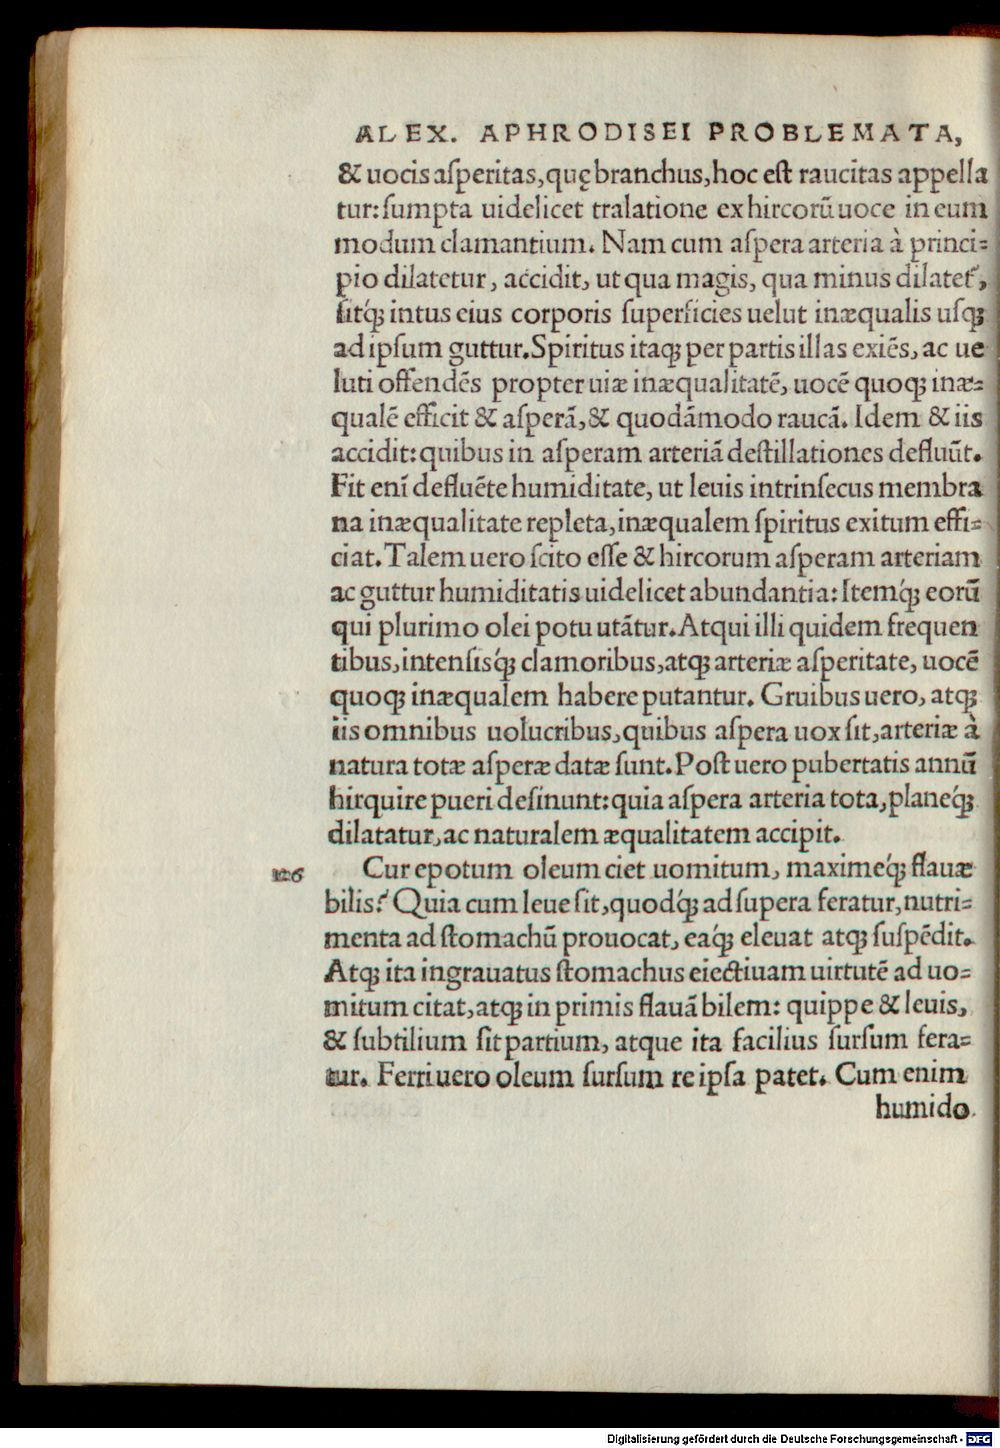 ALEX. APHRODISEI PROBLEMATA,
& uocis aſperitas, quę branchus, hoc eſt raucitas appella
tur: ſumpta uidelicet tralatione ex hircorū uoce in eum
modum clamantium. Nam cum aſpera arteria à princi-
pio dilatetur, accidit, ut qua magis, qua minus dilatet᷒,
ſitq́ꝫ intus eius corporis ſuperficies uelut inæqualis uſqꝫ
ad ipſum guttur. Spiritus itaqꝫ per partis illas exiēs, ac ue
luti offendēs propter uiæ inæqualitatē, uocē quoqꝫ inæ-
qualē efficit & aſperā, & quodāmodo raucā. Idem & iis
accidit: quibus in aſperam arteriā deſtillationes defluūt.
Fit enī defluēte humiditate, ut leuis intrinſecus membra
na inæqualitate repleta, inæqualem ſpiritus exitum effi-
ciat. Talem uero ſcito eſſe & hircorum aſperam arteriam
ac guttur humiditatis uidelicet abundantia: Itemq́ꝫ eorū
qui plurimo olei potu utātur. Atqui illi quidem frequen
tibus, intenſisq́ꝫ clamoribus, atqꝫ arteriæ aſperitate, uocē
quoqꝫ inæqualem habere putantur. Gruibus uero, atqꝫ
iis omnibus uolucribus, quibus aſpera uox ſit, arteriæ à
natura totæ aſperæ datæ ſunt. Poſt uero pubertatis annū
hirquire pueri deſinunt: quia aſpera arteria tota, planeq́ꝫ
dilatatur, ac naturalem æqualitatem accipit.
126 Cur epotum oleum ciet uomitum, maximeq́ꝫ flauæ
bilis? Quia cum leue ſit, quodq́ꝫ ad ſupera feratur, nutri-
menta ad ſtomachū prouocat, eaq́ꝫ eleuat atqꝫ ſuſpēdit.
Atqꝫ ita ingrauatus ſtomachus eiectiuam uirtutē ad uo-
mitum citat, atqꝫ in primis flauā bilem: quippe & leuis,
& ſubtilium ſit partium, atque ita facilius ſurſum fera-
tur. Ferri uero oleum ſurſum re ipſa patet. Cum enim
humido
Digitalisierung gefördert durch die Deutsche Forschungsgemeinschaft - DFG